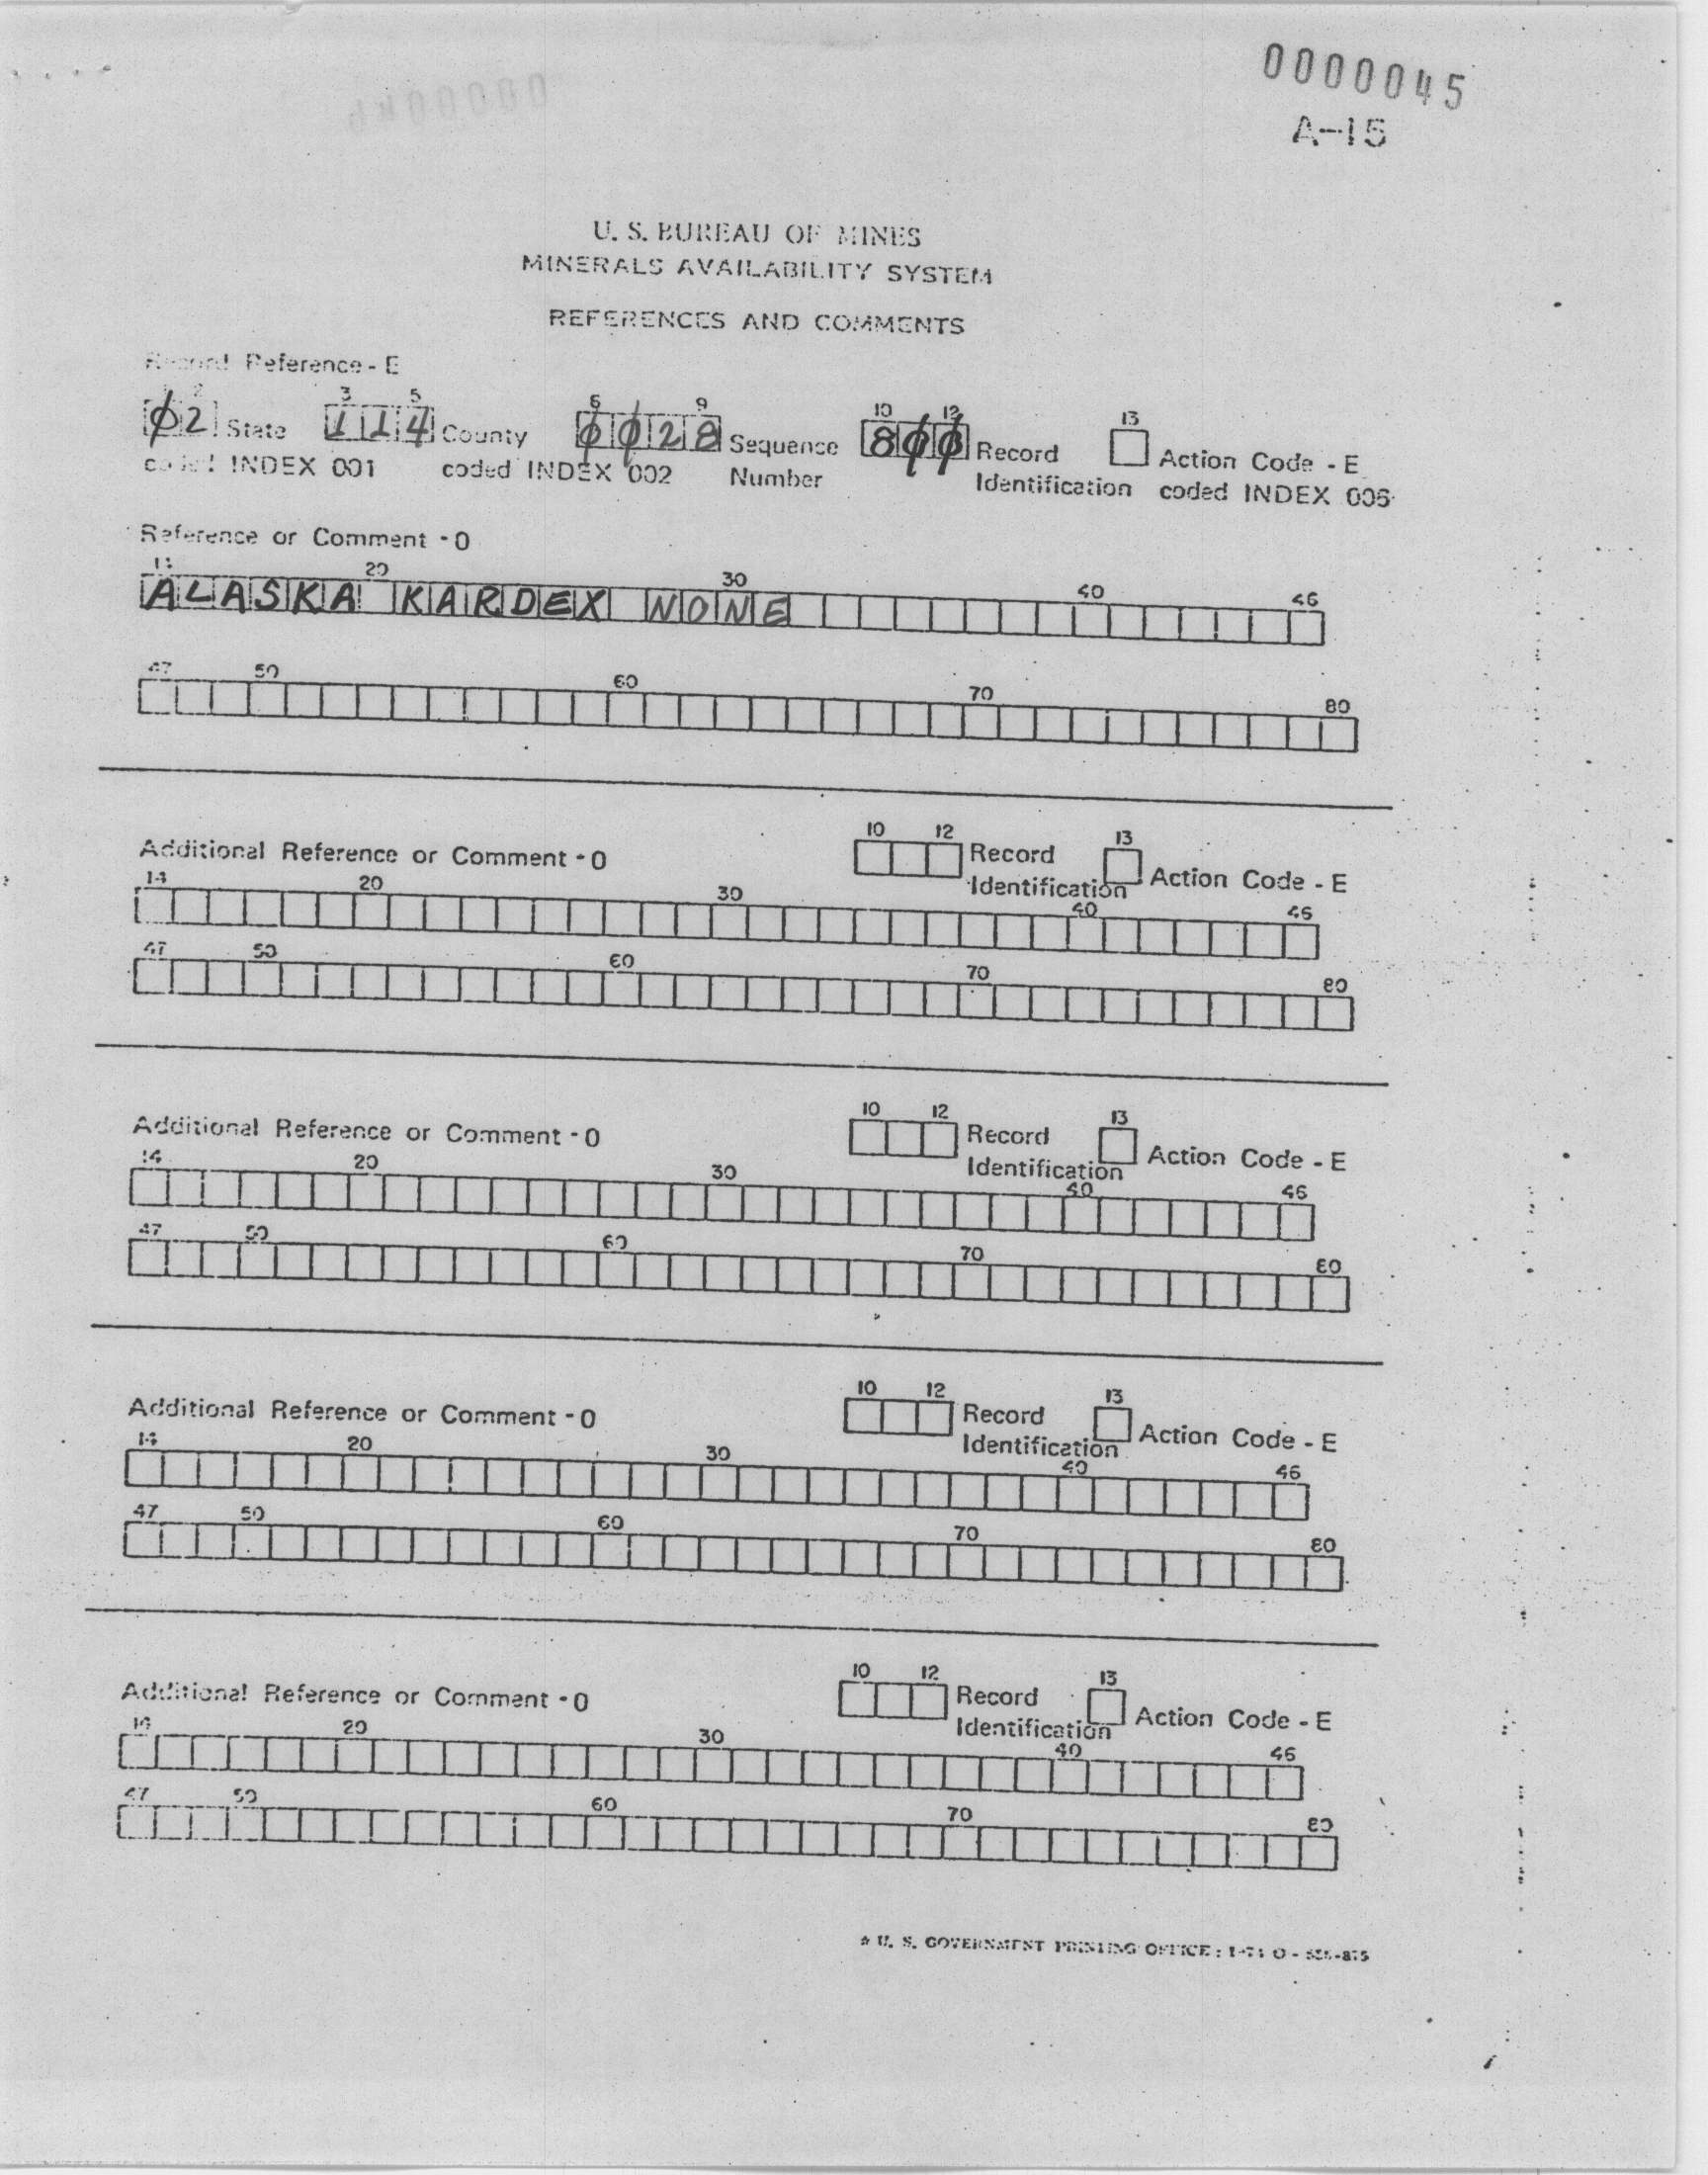 0000045
A-15
U. S. BUREAU OF MINES
MINERALS AVAILABILITY SYSTEM
REFERENCES AND COMMENTS
Record Reference - E
2 3 5 6 9 10 12 13
02 State 114 County 0028 Sequence 800 Record Action Code - E
coded INDEX 001 coded INDEX 002 Number Identification coded INDEX 006
Reference or Comment - O
14 20 30 40 46
ALASKA KARDEX NONE
47 50 60 70 80
Additional Reference or Comment - O 10 12 Record 13 Action Code - E
Identification
14 20 30 40 46
47 50 60 70 80
Additional Reference or Comment - O 10 12 Record 13 Action Code - E
Identification
14 20 30 40 46
47 50 60 70 80
Additional Reference or Comment - O 10 12 Record 13 Action Code - E
Identification
14 20 30 40 46
47 50 60 70 80
Additional Reference or Comment - O 10 12 Record 13 Action Code - E
Identification
14 20 30 40 46
47 50 60 70 80
U. S. GOVERNMENT PRINTING OFFICE :